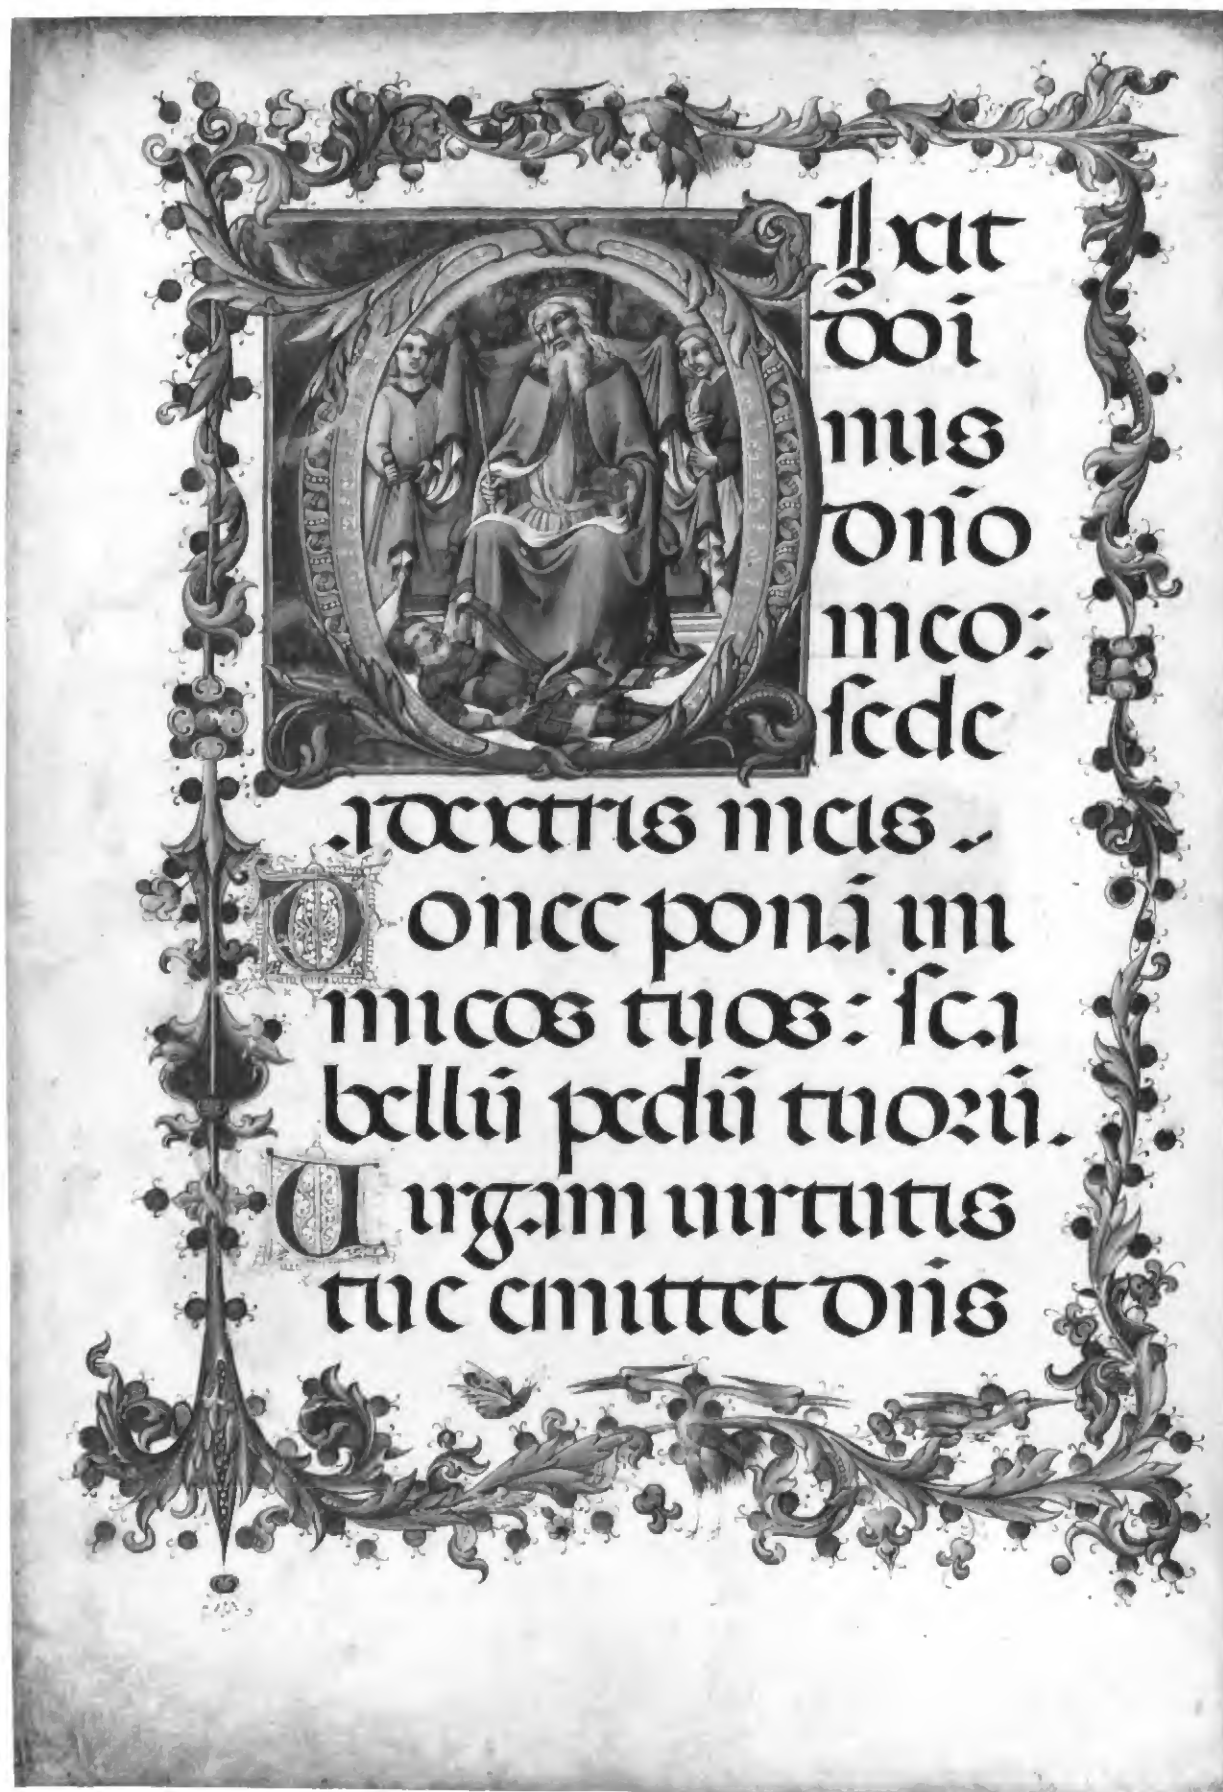 DIxit
domi
nus
dño
meo:
sede
a dextris meis.
Donec ponā ini
micos tuos: sca
bellū pedū tuorū.
Virgam uirtutis
tue emittet dñs